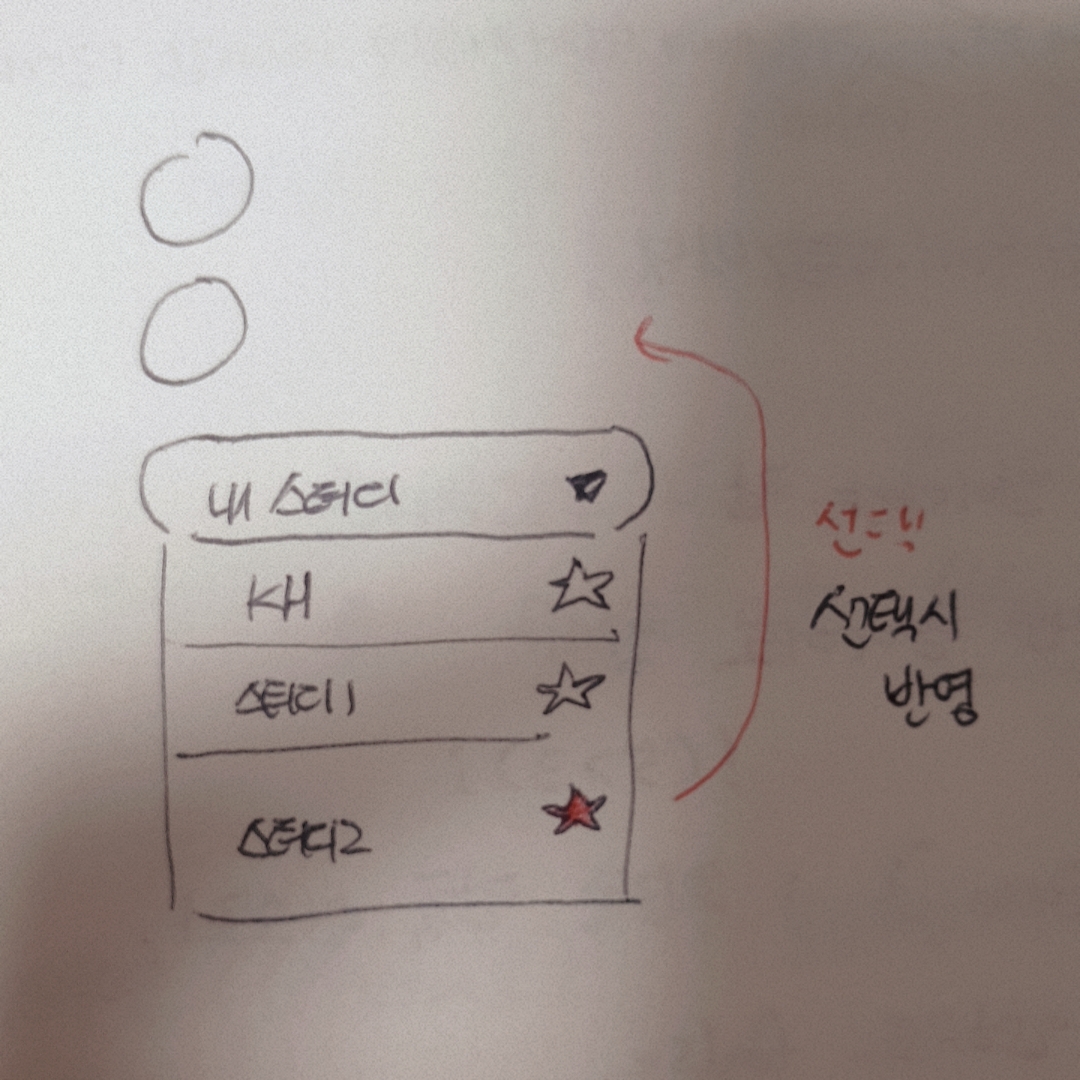 내 스터디
KH
스터디1
스터디2
선택
선택시
반영